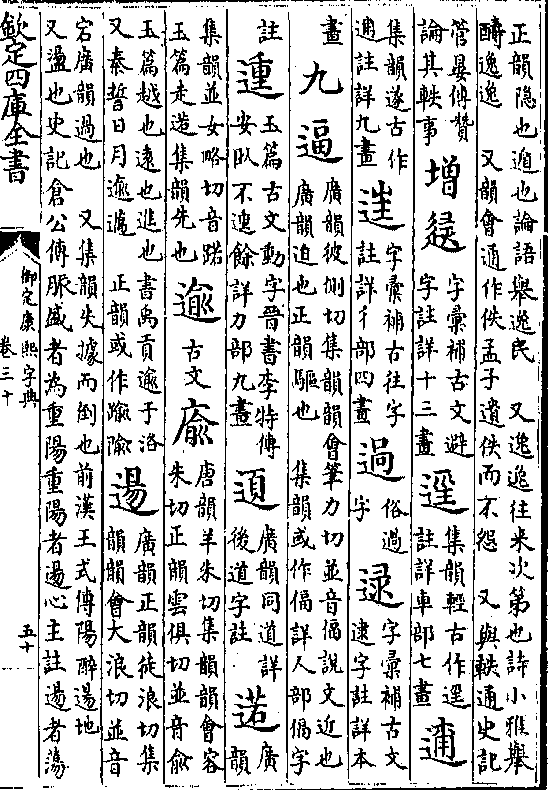 正韻隐也遁也論語舉逸民　又逸逸往来次第也詩小雅舉
醻逸逸　又韻會通作佚孟子遺佚而不怨　又與軼通史記
管晏傳贊
論其軼事
增
字彙補古文避
字註詳十三畫
集韻輕古作
註詳車部七畫
集韻遂古作
註詳九畫
字彙補古徃字
註詳彳部四畫
過
俗過
字
逯
字彙補古文
逮字註詳本
畫
九
逼
廣韻彼側切集韻韻會筆力切並音偪說文近也
廣韻迫也正韻驅也　集韻或作偪詳人部偪字
註
𨔝
玉篇古文動字晉書李特傳
安臥不𨔝餘詳力部九畫
廣韻同道詳
後道字註
逽
廣韻
集韻並女略切音踞
玉篇走逽集韻先也
逾
古文
㾞
唐韻羊朱切集韻韻會容
朱切正韻雲俱切並音俞
玉篇越也遠也進也　書禹貢逾于洛
又秦誓日月逾邁　正韻或作踰隃
逿
廣韻正韻徒浪切集
韻韻會大浪切並音
宕廣韻過也　又集韻失據而倒也前漢王式傳陽醉逿地
又盪也史記倉公傳脈盛者為重陽重陽者逿心主註逿者蕩
欽定四庫全書
御定康熙字典
卷三十
五十